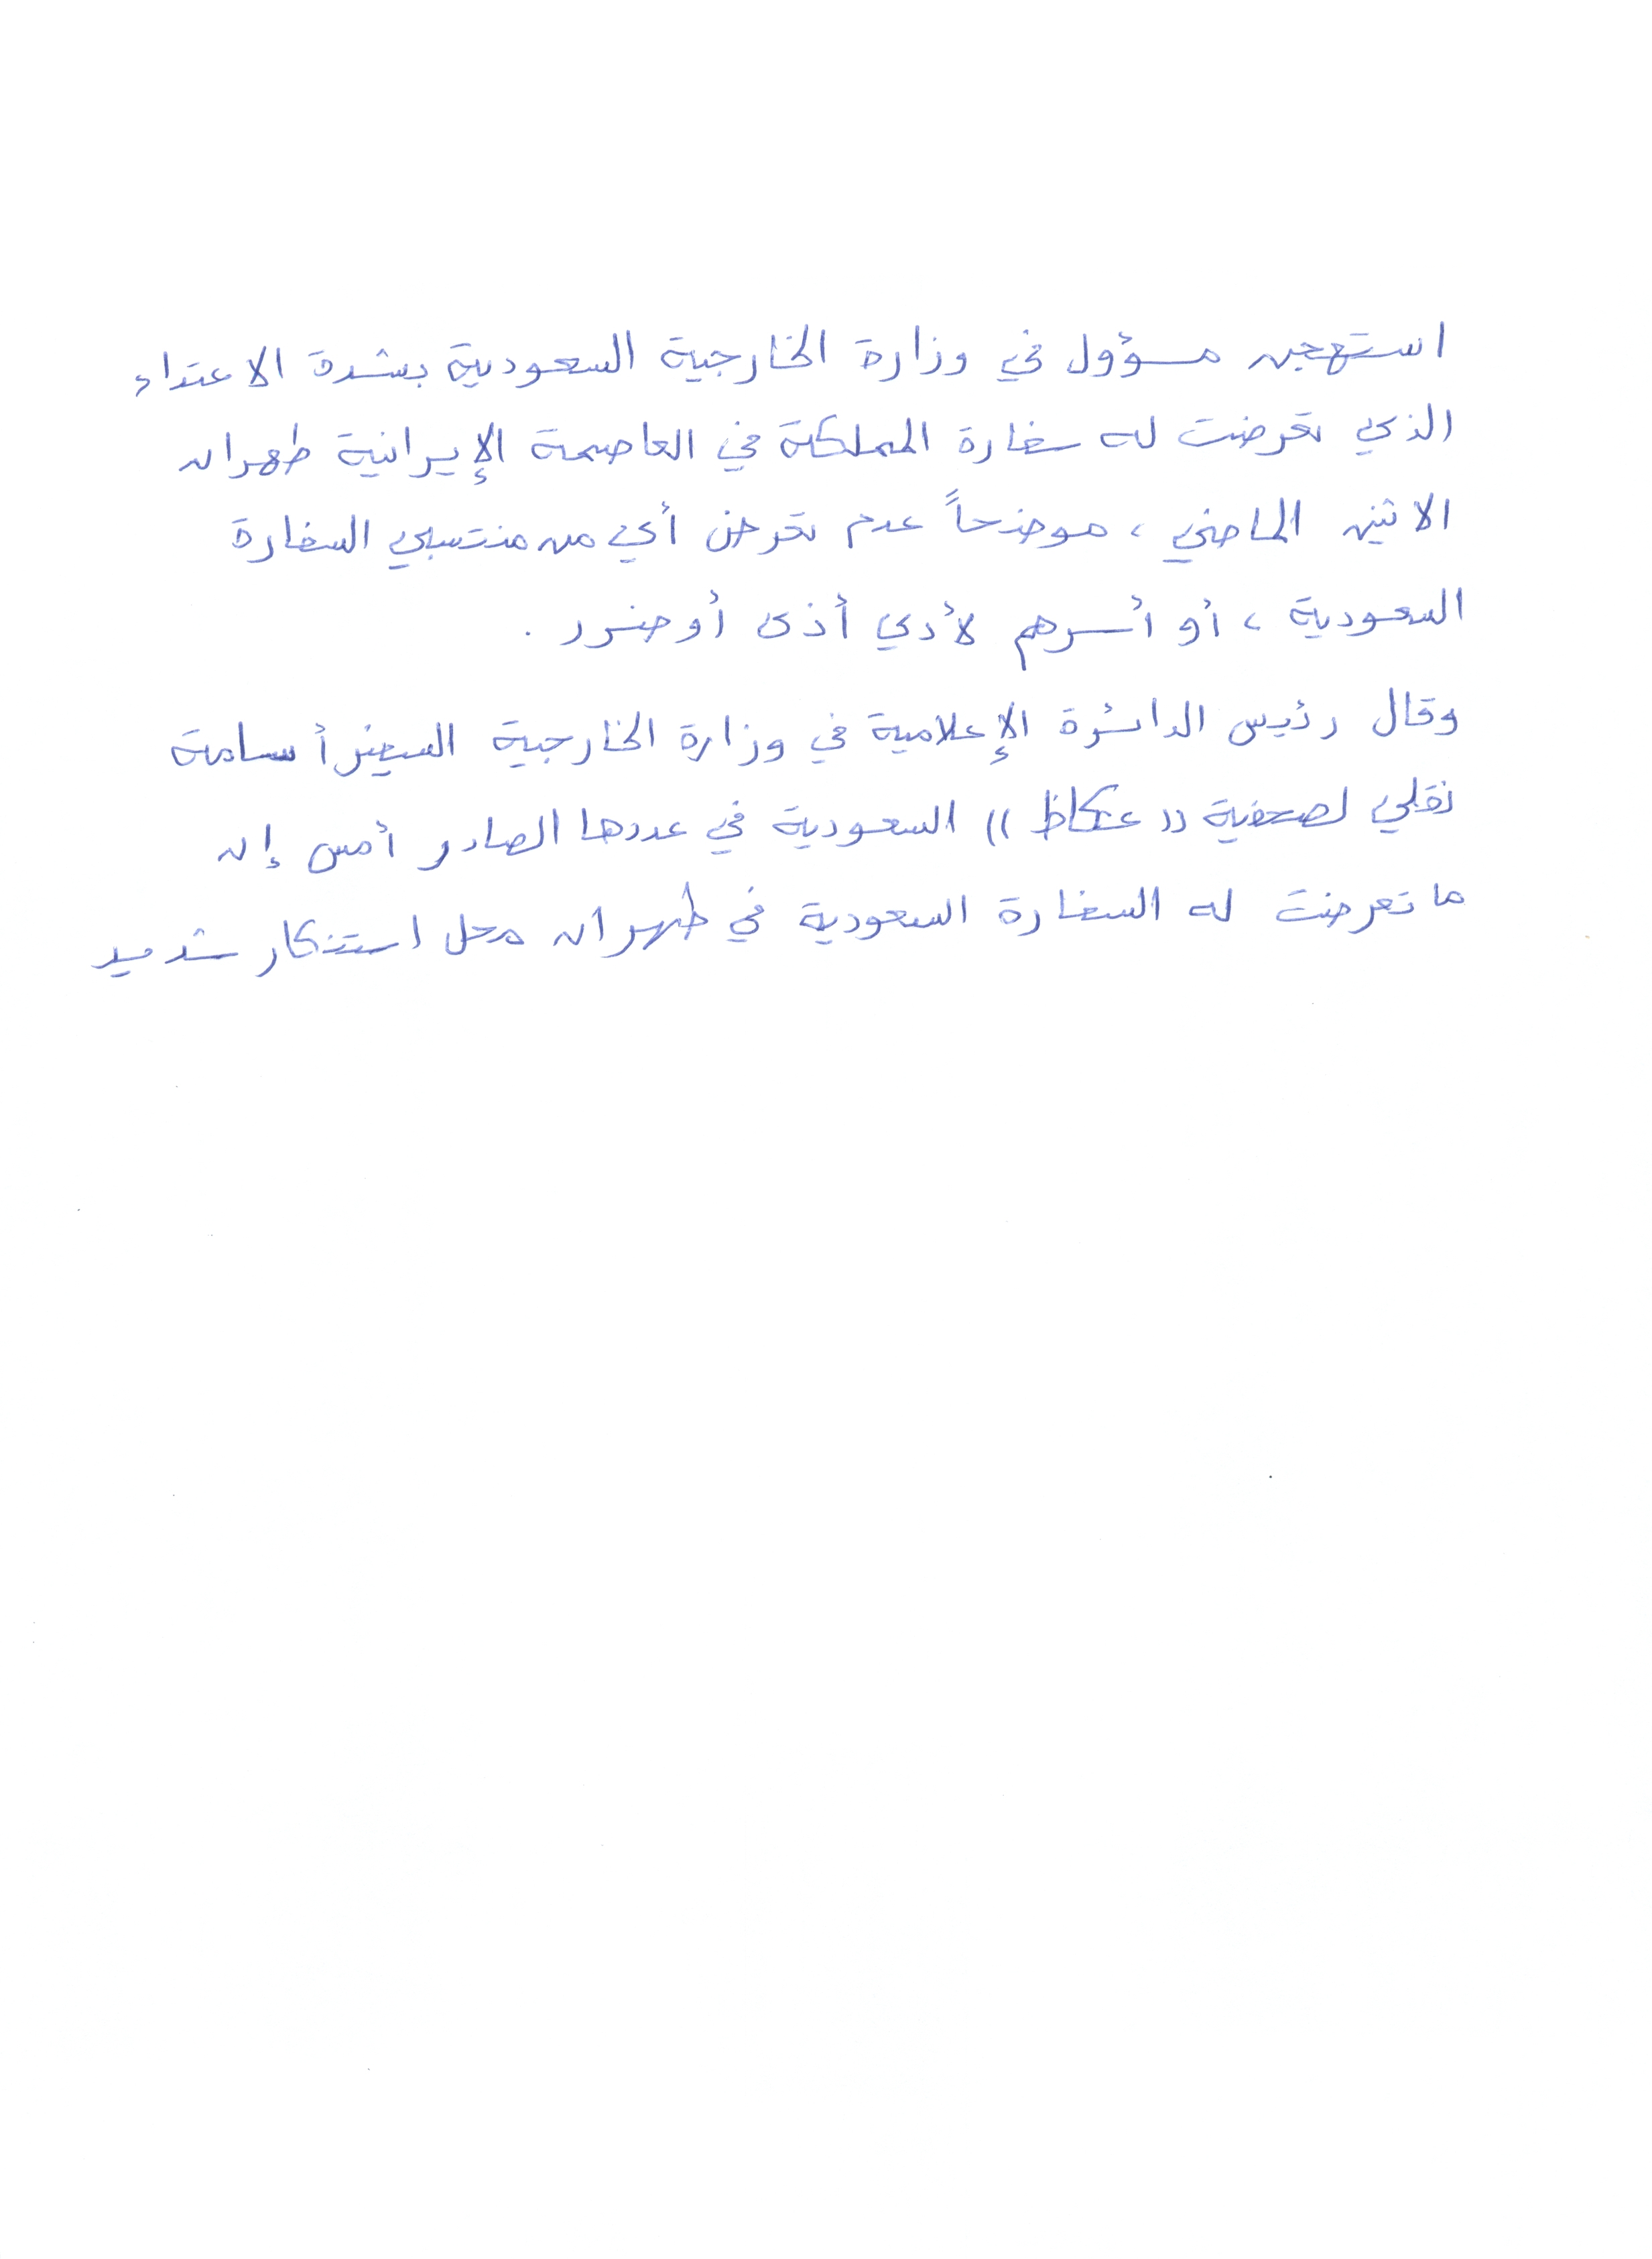 استهجن مسؤول في وزارة الخارجية السعودية بشدة الاعتداء
الذي تعرضت له سفارة المملكة في العاصمة الإيرانية طهران
الاثنين الماضي ، موضحاً عدم تعرض أي من منتسبي السفارة
السعودية ، أو أسرهم لأي أذى أو ضرر .
وقال رئيس الدائرة الإعلامية في وزارة الخارجية السفير أسامة
نقلي لصحفية (( عكاظ )) السعودية في عددها الصادر أمس إن
ما تعرضت له السفارة السعودية في طهران محل استنكار شديد